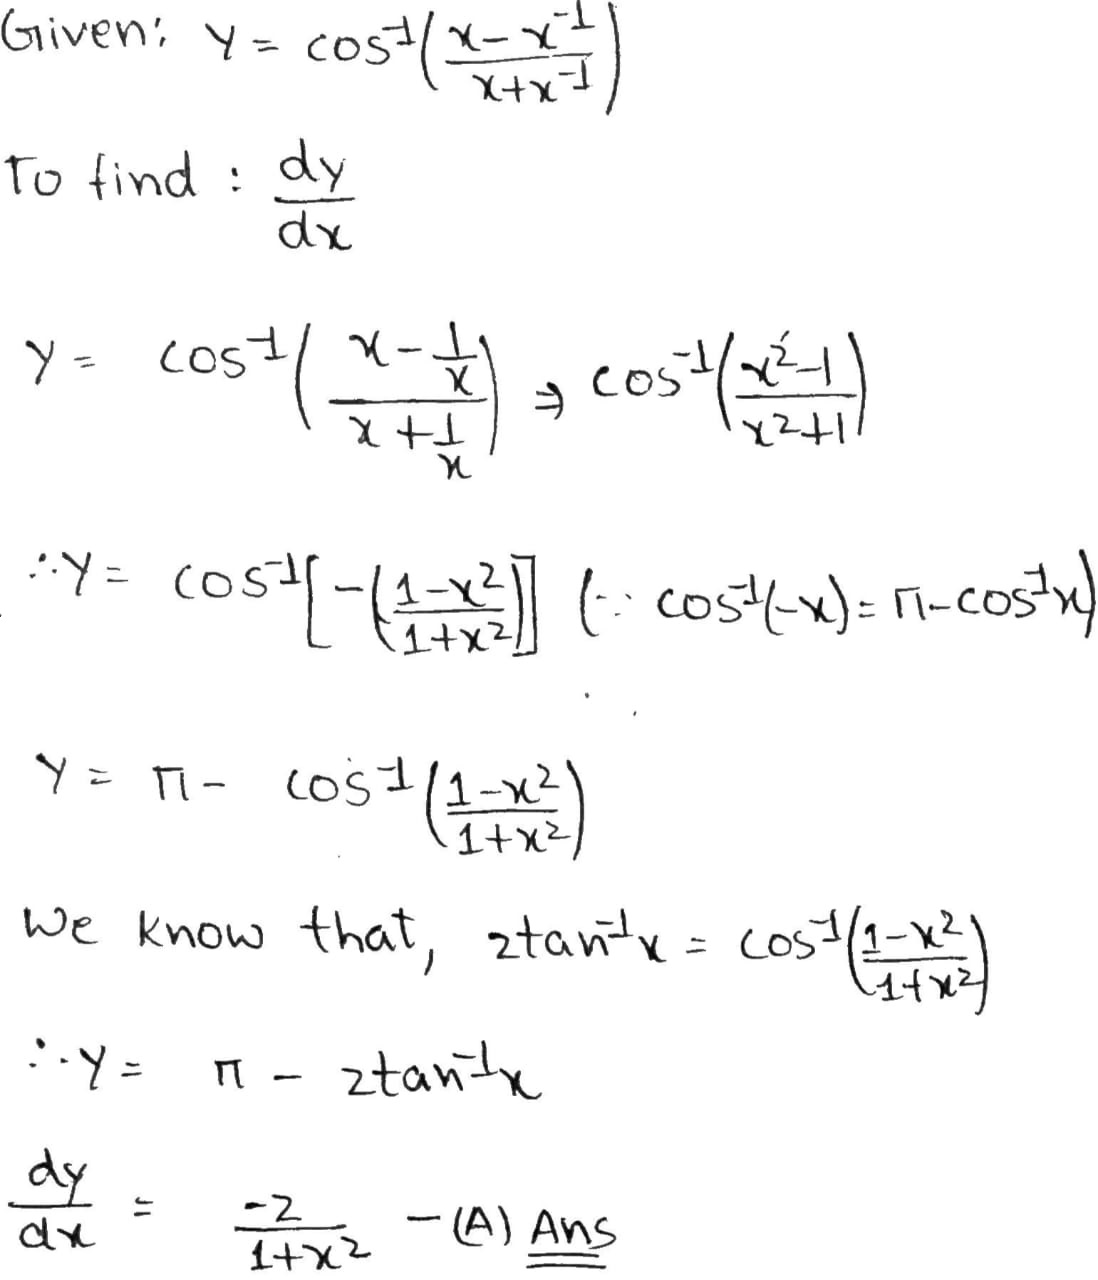 Given: y = cos⁻¹((x-x⁻¹)/(x+x⁻¹))
To find : dy/dx
y = cos⁻¹((x-1/x)/(x+1/x)) ⇒ cos⁻¹((x²-1)/(x²+1))
∴ y = cos⁻¹[-((1-x²)/(1+x²))] (∵ cos⁻¹(-x) = π-cos⁻¹x)
y = π - cos⁻¹((1-x²)/(1+x²))
We know that, 2tan⁻¹x = cos⁻¹((1-x²)/(1+x²))
∴ y = π - 2tan⁻¹x
dy/dx = -2/(1+x²) - (A) Ans